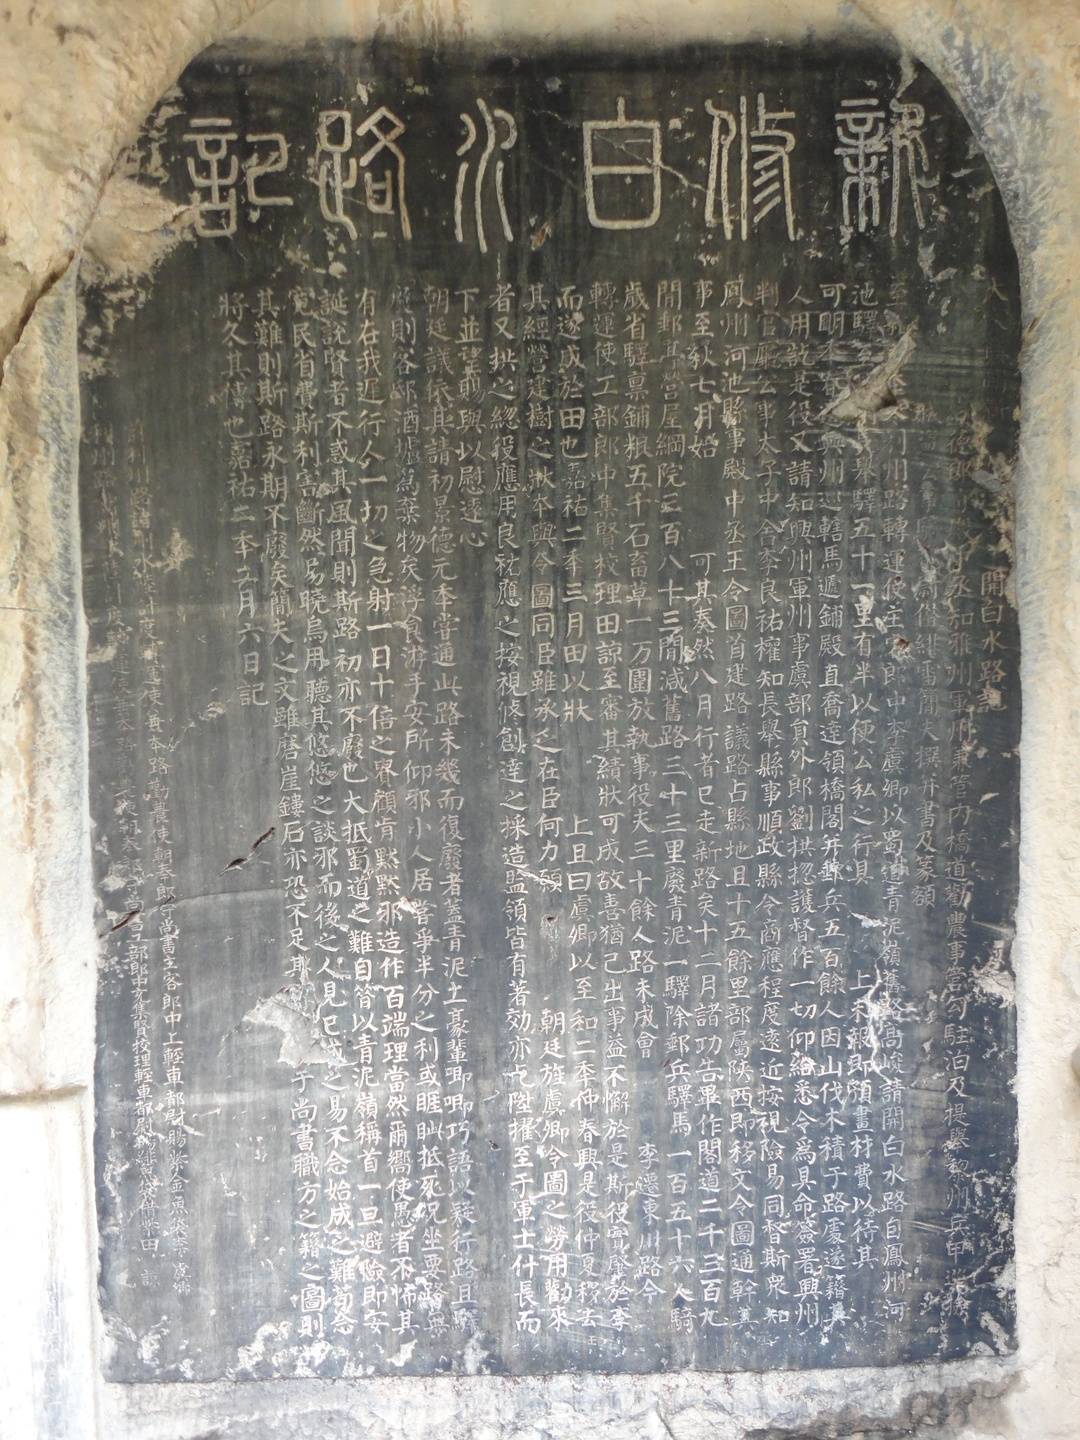 新修白水路記
開白水路記
丞知雅州軍州兼管内橋道勸農事管勾駐泊及提舉黎州兵甲
借緋雷簡夫撰并書及篆額
至和
利州路轉運使主客郎中李虞卿以蜀道青泥嶺舊路高峻請開白水路自鳳州河
池驛至長舉驛五十一里有半以便公私之行具 上未報即預畫材費以待其
可明年
興州巡轄馬遞鋪殿直喬達領橋閣并郵兵五百餘人因山伐木積于路處遂籍其
人用訖是役又請知興州軍州事虞部員外郎劉拱揔護督作一切仰給悉令爲具命簽署興州
判官廳公事太子中舍李良祐權知長舉縣事順政縣令商應程度遠近按視險易同督斯衆知
鳳州河池縣事殿中丞王令圖首建路議路占縣地且十五餘里部屬陝西即移文令圖通幹其
事至秋七月始 可其奏然八月行者已走新路矣十二月諸功告畢作閣道二千三百九
間郵亭營屋綱院三百八十三間減舊路三十三里廢青泥一驛除郵兵驛馬一百五十六人騎
歲省驛稟鋪粮五千石畜草一万圍放執事役夫三十餘人路未成會 李遷東川路今
轉運使工部郎中集賢校理田諒至審其績狀可成故善猶己出事益不懈於是斯役實肇於李
而遂成於田也嘉祐二年三月田以狀 上且曰虞卿以至和二年仲春興是役仲夏移去
其經營建樹之狀本與令圖同臣雖承乏在臣何力願 朝廷旌虞卿令圖之勞用勸來
者又拱之總役應用良祐應之按視修創達之採造監領皆有著効亦乞陞擢至于軍士什長而
下並望賜與以慰遠心
朝廷議依其請初景德元年嘗通此路未幾而復廢者蓋青泥土豪輩唧唧巧語以疑行路且驛
廢則客邸酒壚爲棄物矣浮食游手安所仰邪小人居嘗爭半分之利或睚眦抵死況坐要路無
有在我遲行人一切之急射一日十倍之資顧肯默默邪造作百端理當然爾嚮使愚者不怖其
誕說賢者不惑其風聞則斯路初亦不廢也大抵蜀道之難自昔以青泥嶺稱首一旦避險即安
寬民省費斯利害斷然易曉烏用聽其悠悠之談邪而後之人見已成之易不念始成之難苟念
其難則斯路永期不廢矣簡夫之文雖磨崖鏤石亦恐不足其 于尚書職方之籍之圖則
將久其傳也嘉祐二年二月六日記
利州路
水陸計度轉運使兼本路勸農使朝奉郎守尚書主客郎中上輕車都尉賜紫金魚袋李虞卿
利州路
計度轉運使兼本路勸農使朝奉郎尚書工部郎中充集賢校理輕車都尉賜緋魚袋借紫田諒